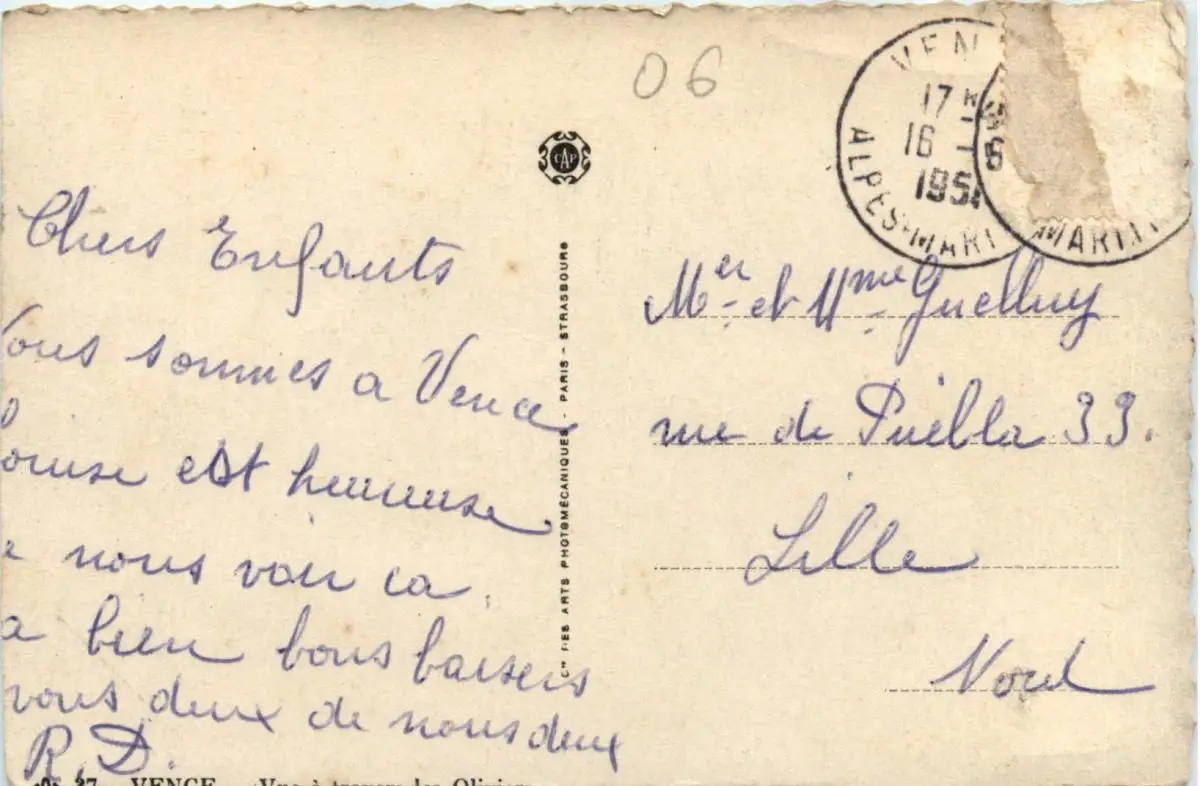 06
VEN
17 H
16 - 6
1951
ALPES-MARIT
MARITI
CAP
Chers Enfants
Nous sommes a Vence
Louise est heureuse
de nous voir ca
va bien bons baisers
vous deux de nous deux
R. D.
Cie DES ARTS PHOTOMÉCANIQUES - PARIS - STRASBOURG
Mer et Mme Guelluy
rue de Puébla 33.
Lille
Nord
37 VENCE Vue à travers les Oliviers